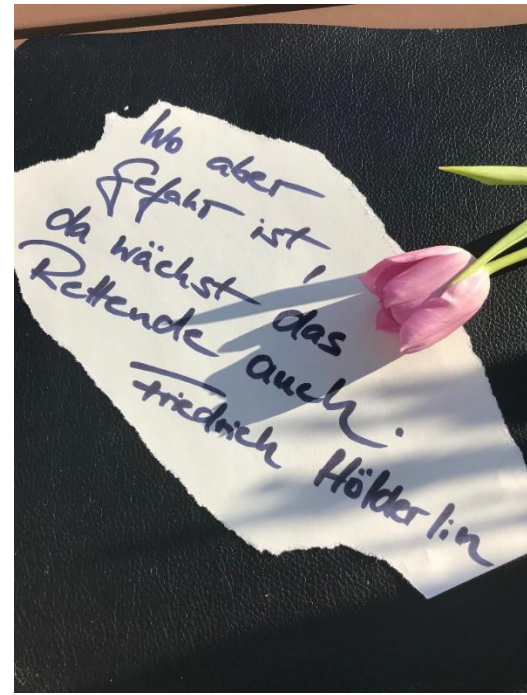 Wo aber
Gefahr ist,
da wächst das
Rettende auch.
Friedrich Hölderlin